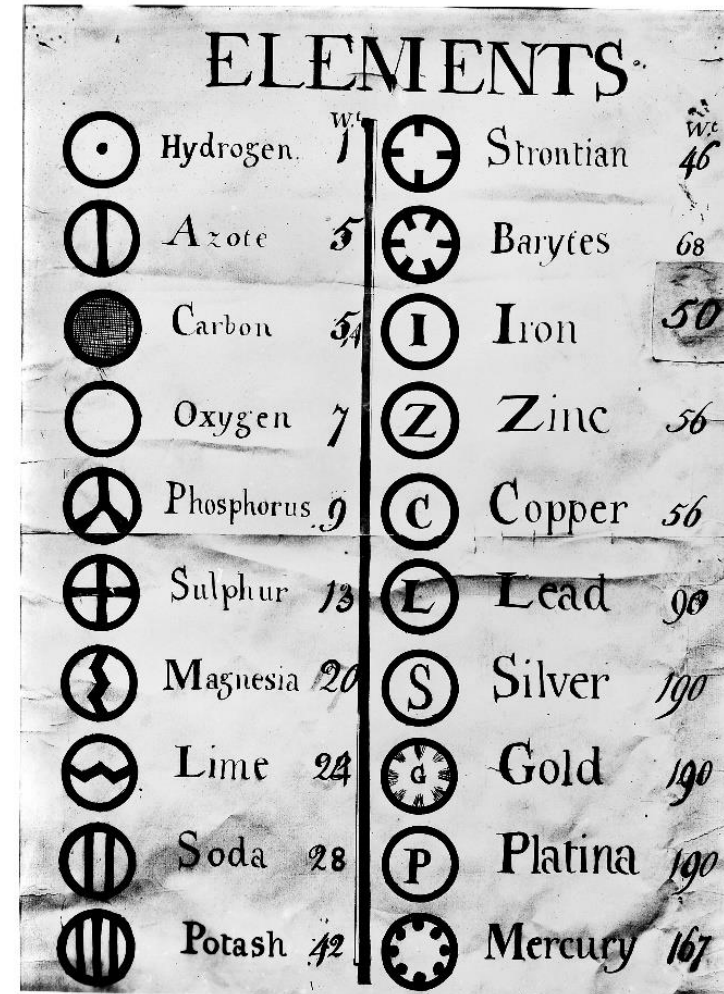 ELEMENTS
Wt
Hydrogen. 1
Azote 5
Carbon 5,4
Oxygen 7
Phosphorus. 9
Sulphur 13
Magnesia 20
Lime 24
Soda 28
Potash 42
Wt
Strontian 46
Barytes 68
I Iron 50
Z Zinc 56
C Copper 56
L Lead 90
S Silver 190
G Gold 190
P Platina 190
Mercury 167